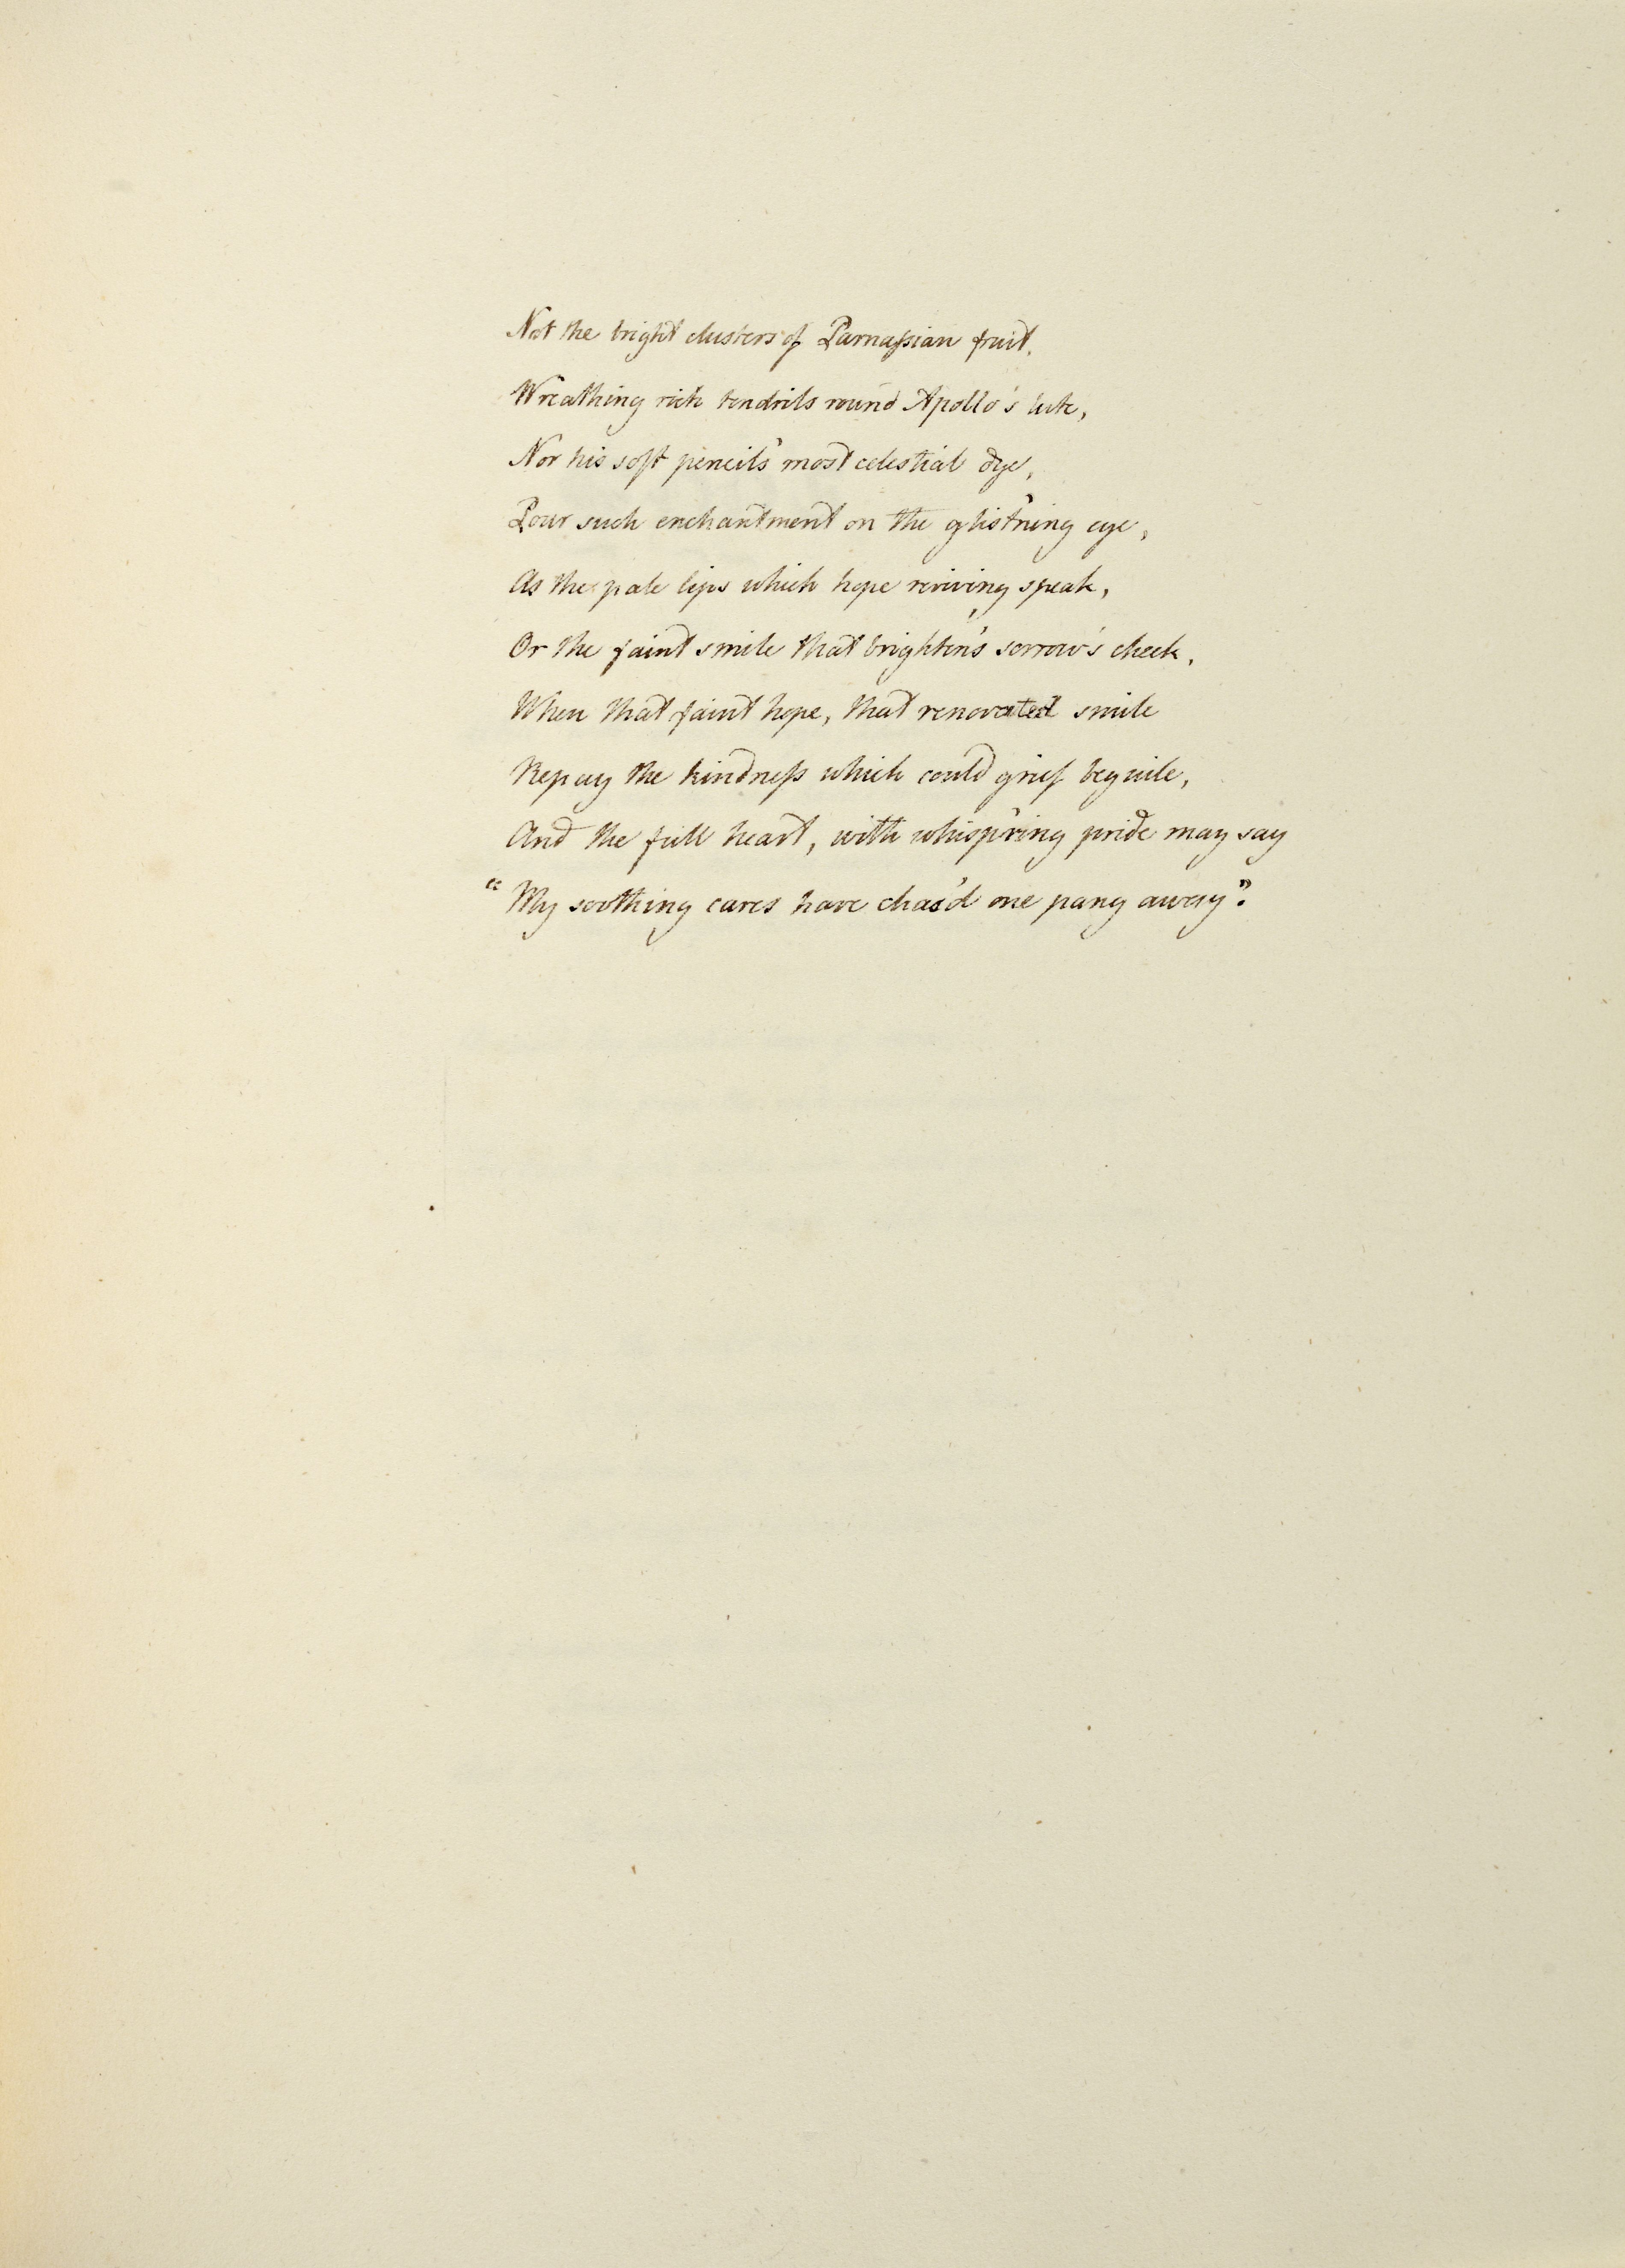 Not the bright clusters of Parnaſsian fruit,
Wreathing rich tendrils round Apollo's lute,
Nor his soft pencils' most celestial dye,
Pour such enchantment on the glist'ning eye,
As the pale lips which hope reviving speak,
Or the faint smile that bright'ns sorrow's cheek,
When that faint hope, that renovated smile
Repay the kindneſs which could grief beguile,
And the full heart, with whisp'ring pride may say
"My soothing cares have chas'd one pang away".